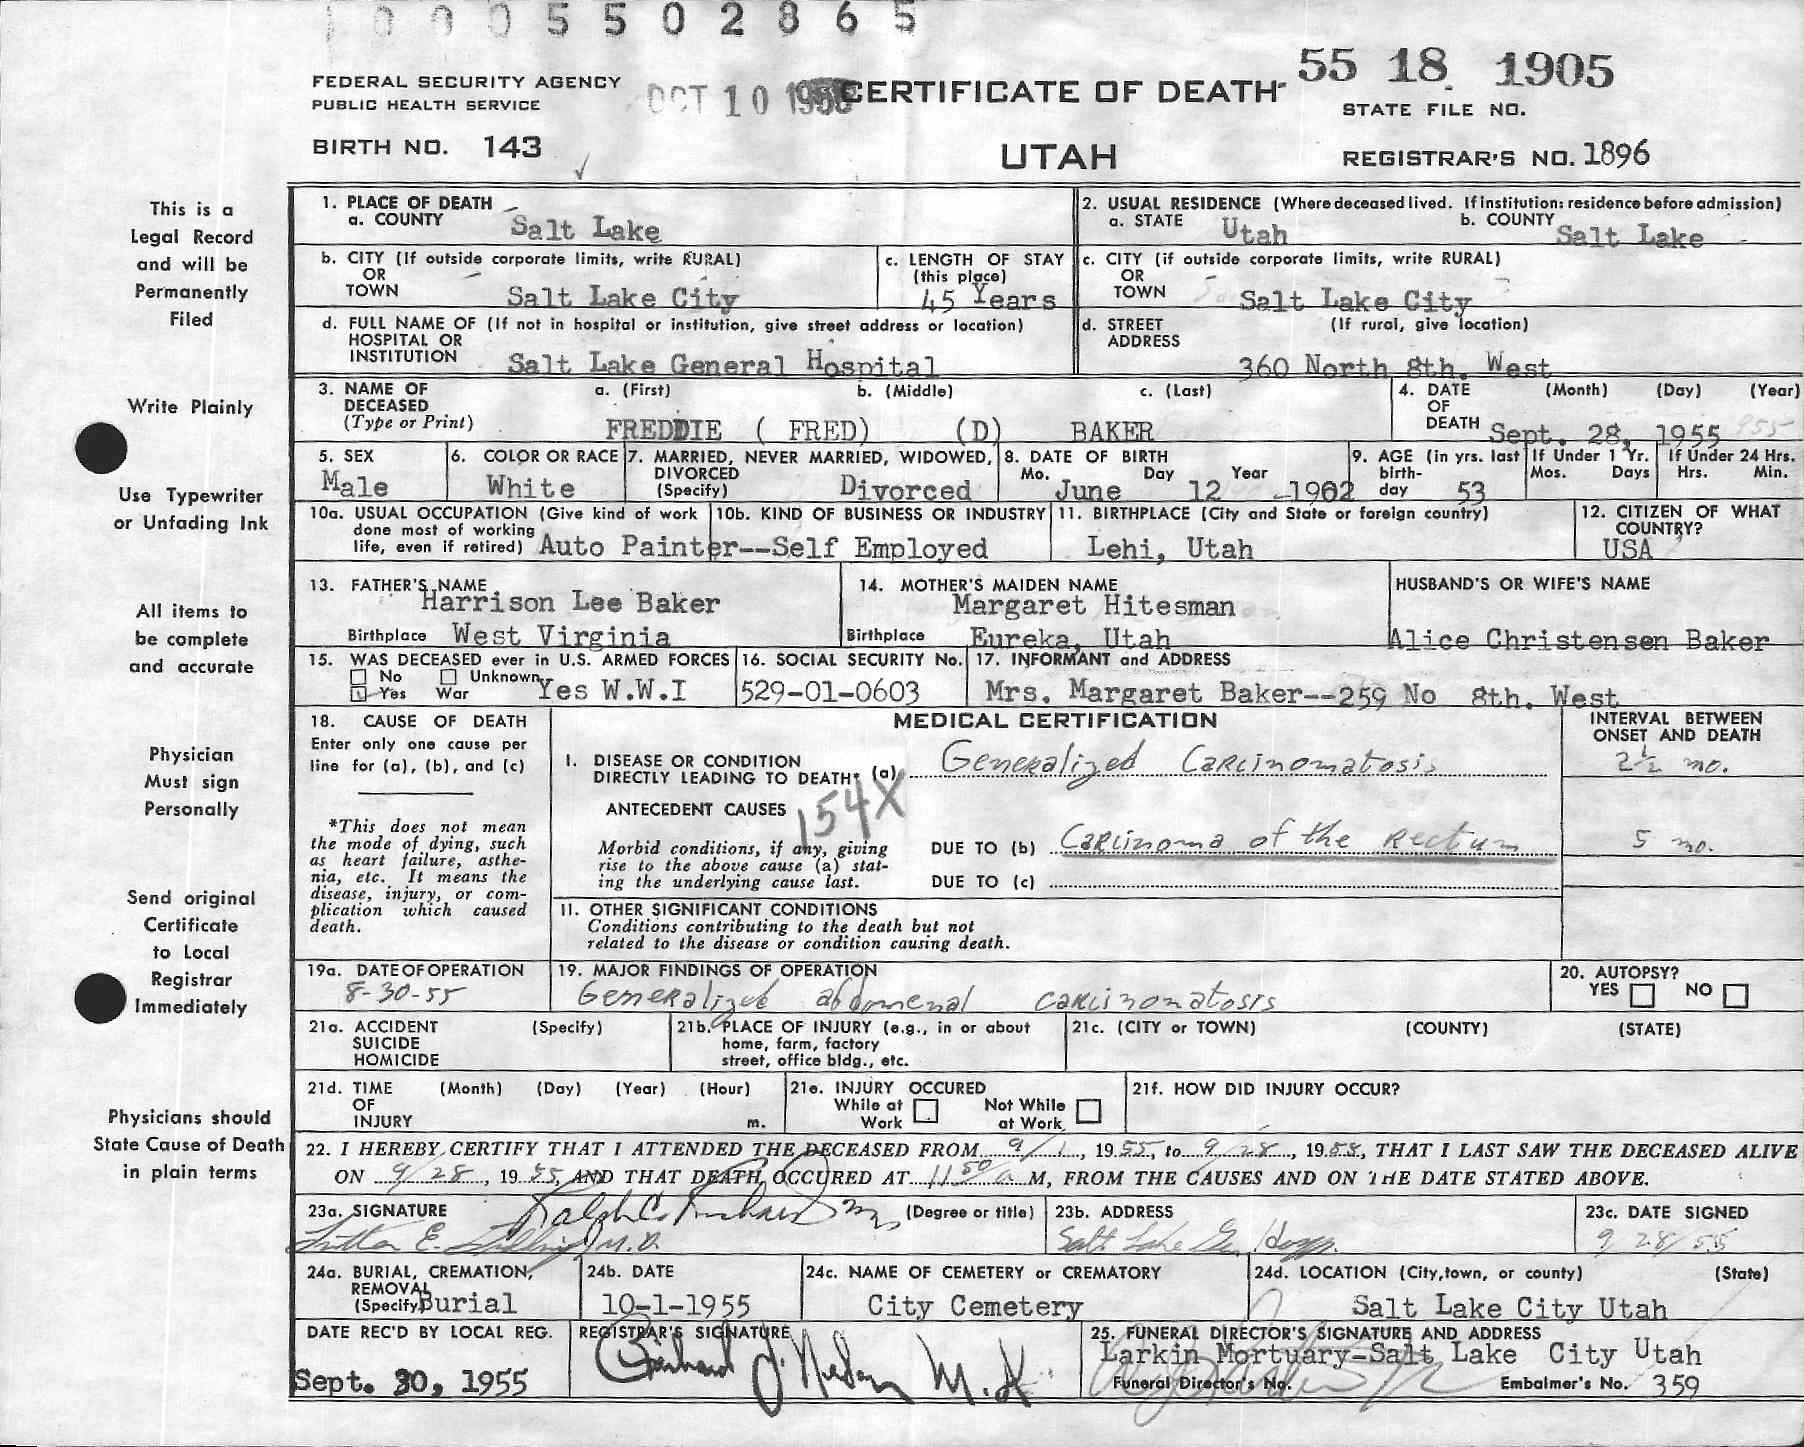 1 0 0 0 5 5 0 2 8 6 5
FEDERAL SECURITY AGENCY
PUBLIC HEALTH SERVICE
OCT 10
CERTIFICATE OF DEATH
55 18 1905
STATE FILE NO.
BIRTH NO. 143
UTAH
REGISTRAR'S NO. 1896
This is a
Legal Record
and will be
Permanently
Filed
Write Plainly
Use Typewriter
or Unfading Ink
All items to
be complete
and accurate
Physician
Must sign
Personally
Send original
Certificate
to Local
Registrar
Immediately
Physicians should
State Cause of Death
in plain terms
1. PLACE OF DEATH
a. COUNTY Salt Lake
2. USUAL RESIDENCE (Where deceased lived. If institution: residence before admission)
a. STATE Utah b. COUNTY Salt Lake
b. CITY (If outside corporate limits, write RURAL)
OR
TOWN Salt Lake City
c. LENGTH OF STAY
(this place)
45 Years
c. CITY (if outside corporate limits, write RURAL)
OR
TOWN Salt Lake City
d. FULL NAME OF (If not in hospital or institution, give street address or location)
HOSPITAL OR
INSTITUTION Salt Lake General Hospital
d. STREET (If rural, give location)
ADDRESS
360 North 8th. West
3. NAME OF a. (First) b. (Middle) c. (Last)
DECEASED
(Type or Print) FREDDIE ( FRED) (D) BAKER
4. DATE (Month) (Day) (Year)
OF
DEATH Sept. 28, 1955
5. SEX
Male
6. COLOR OR RACE
White
7. MARRIED, NEVER MARRIED, WIDOWED,
DIVORCED
(Specify) Divorced
8. DATE OF BIRTH
Mo. Day Year
June 12 1902
9. AGE (in yrs. last
birth-
day 53
If Under 1 Yr.
Mos. Days
If Under 24 Hrs.
Hrs. Min.
10a. USUAL OCCUPATION (Give kind of work
done most of working
life, even if retired) Auto Painter--Self Employed
10b. KIND OF BUSINESS OR INDUSTRY
11. BIRTHPLACE (City and State or foreign country)
Lehi, Utah
12. CITIZEN OF WHAT
COUNTRY?
USA
13. FATHER'S NAME
Harrison Lee Baker
Birthplace West Virginia
14. MOTHER'S MAIDEN NAME
Margaret Hitesman
Birthplace Eureka, Utah
HUSBAND'S OR WIFE'S NAME
Alice Christensen Baker
15. WAS DECEASED ever in U.S. ARMED FORCES
No Unknown
Yes War Yes W.W.I
16. SOCIAL SECURITY No.
529-01-0603
17. INFORMANT and ADDRESS
Mrs. Margaret Baker--259 No 8th. West
18. CAUSE OF DEATH
Enter only one cause per
line for (a), (b), and (c)
*This does not mean
the mode of dying, such
as heart failure, asthe-
nia, etc. It means the
disease, injury, or com-
plication which caused
death.
MEDICAL CERTIFICATION
INTERVAL BETWEEN
ONSET AND DEATH
I. DISEASE OR CONDITION
DIRECTLY LEADING TO DEATH* (a) Generalized Carcinomatosis 2½ mo.
ANTECEDENT CAUSES 154X
Morbid conditions, if any, giving
rise to the above cause (a) stat-
ing the underlying cause last.
DUE TO (b) Carcinoma of the Rectum 5 mo.
DUE TO (c)
11. OTHER SIGNIFICANT CONDITIONS
Conditions contributing to the death but not
related to the disease or condition causing death.
19a. DATE OF OPERATION
8-30-55
19. MAJOR FINDINGS OF OPERATION
Generalized abdomenal carcinomatosis
20. AUTOPSY?
YES NO
21a. ACCIDENT (Specify)
SUICIDE
HOMICIDE
21b. PLACE OF INJURY (e.g., in or about
home, farm, factory
street, office bldg., etc.
21c. (CITY or TOWN) (COUNTY) (STATE)
21d. TIME (Month) (Day) (Year) (Hour)
OF
INJURY m.
21e. INJURY OCCURED
While at Work
Not While at Work
21f. HOW DID INJURY OCCUR?
22. I HEREBY CERTIFY THAT I ATTENDED THE DECEASED FROM 9/1, 1955, to 9/28, 1955, THAT I LAST SAW THE DECEASED ALIVE
ON 9/28, 1955, AND THAT DEATH OCCURED AT 11 50 a M, FROM THE CAUSES AND ON THE DATE STATED ABOVE.
23a. SIGNATURE Ralph C. (Degree or title)
E. M.D.
23b. ADDRESS
Salt Lake Gen Hosp.
23c. DATE SIGNED
9/28/55
24a. BURIAL, CREMATION,
REMOVAL
(Specify) Burial
24b. DATE
10-1-1955
24c. NAME OF CEMETERY or CREMATORY
City Cemetery
24d. LOCATION (City,town, or county) (State)
Salt Lake City Utah
DATE REC'D BY LOCAL REG.
Sept. 30, 1955
REGISTRAR'S SIGNATURE
25. FUNERAL DIRECTOR'S SIGNATURE AND ADDRESS
Larkin Mortuary-Salt Lake City Utah
Funeral Director's No. Embalmer's No. 359